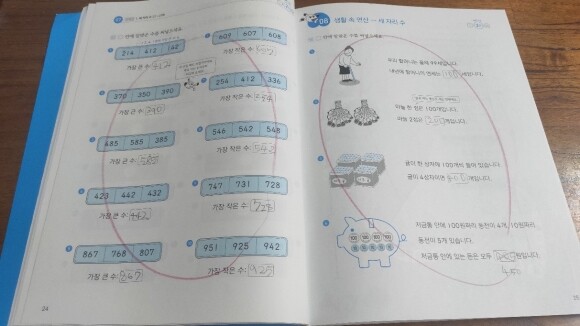 214 412 142
가장 큰 수: 412
370 350 390
가장 큰 수: 390
485 585 385
가장 큰 수: 585
423 442 432
가장 큰 수: 442
867 768 807
가장 큰 수: 867
24
609 607 608
가장 작은 수:
254 412 336
가장 작은 수: 254
546 542 548
가장 작은 수: 542
747 731 728
가장 작은 수: 728
951 925 942
가장 작은 수: 925
06 생활 속 연산 – 세 자리 수
안에 알맞은 수를 써넣으세요.
우리 할머니는 올해 99세입니다.
내년에 할머니의 연세는 100세입니다.
마늘 한 접은 100개입니다.
귤이 한 상자에 100개씩 들어 있습니다.
귤이 4상자이면 400개입니다.
저금통 안에 100원짜리 동전이 4개, 10원짜리
동전이 5개 있습니다.
저금통 안에 있는 돈은 모두 원입니다.
450